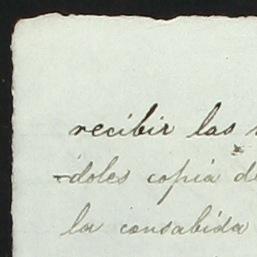 recibir las
-doles copia de
la consabida